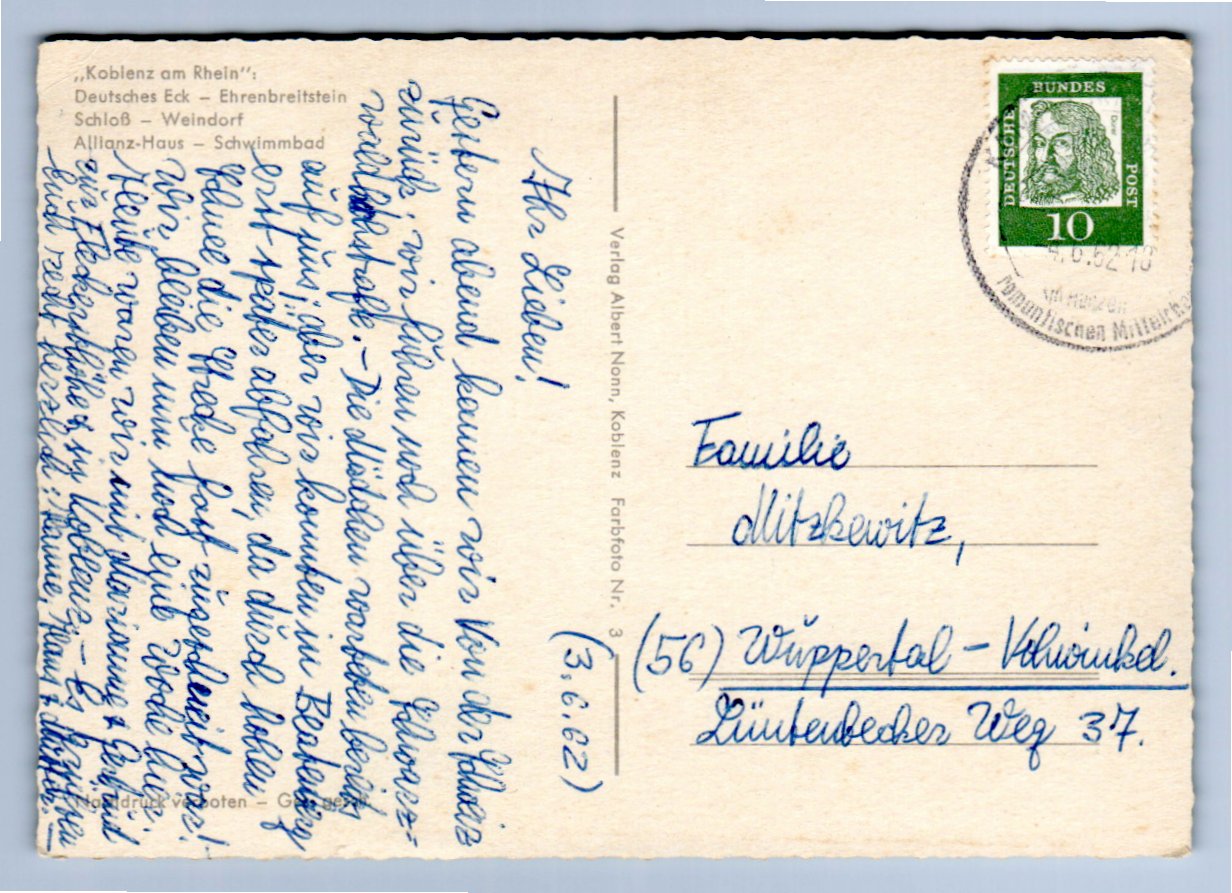 „Koblenz am Rhein":
Deutsches Eck – Ehrenbreitstein
Schloß – Weindorf
Allianz-Haus – Schwimmbad
(3.6.62)
Ihr Lieben!
Gestern abend kamen wir von der Schweiz
zurück; wir fuhren noch über die Schwarz=
waldhochstraße. – Die Mädchen warteten bereits
auf uns; aber wir konnten in Beatenberg
erst später abfahren, da durch hohen
Schnee die Strecke fast zugeschneit war!
Wir bleiben nun noch eine Woche hier.
Heute waren wir mit Marianne & Gerlind
zur Fleckertshöhe & in Koblenz – Es grüßen
Euch recht herzlich: Hanne, Hans &
Nachdruck verboten – Ges. gesch.
Verlag Albert Nonn, Koblenz Farbfoto Nr. 3
DEUTSCHE
BUNDES
POST
Dürer
10
4.6.62 18
romantischen Mittelrhein
Familie
Mitzkewitz,
(56) Wuppertal – Vohwinkel.
Lüntenbecker Weg 37.